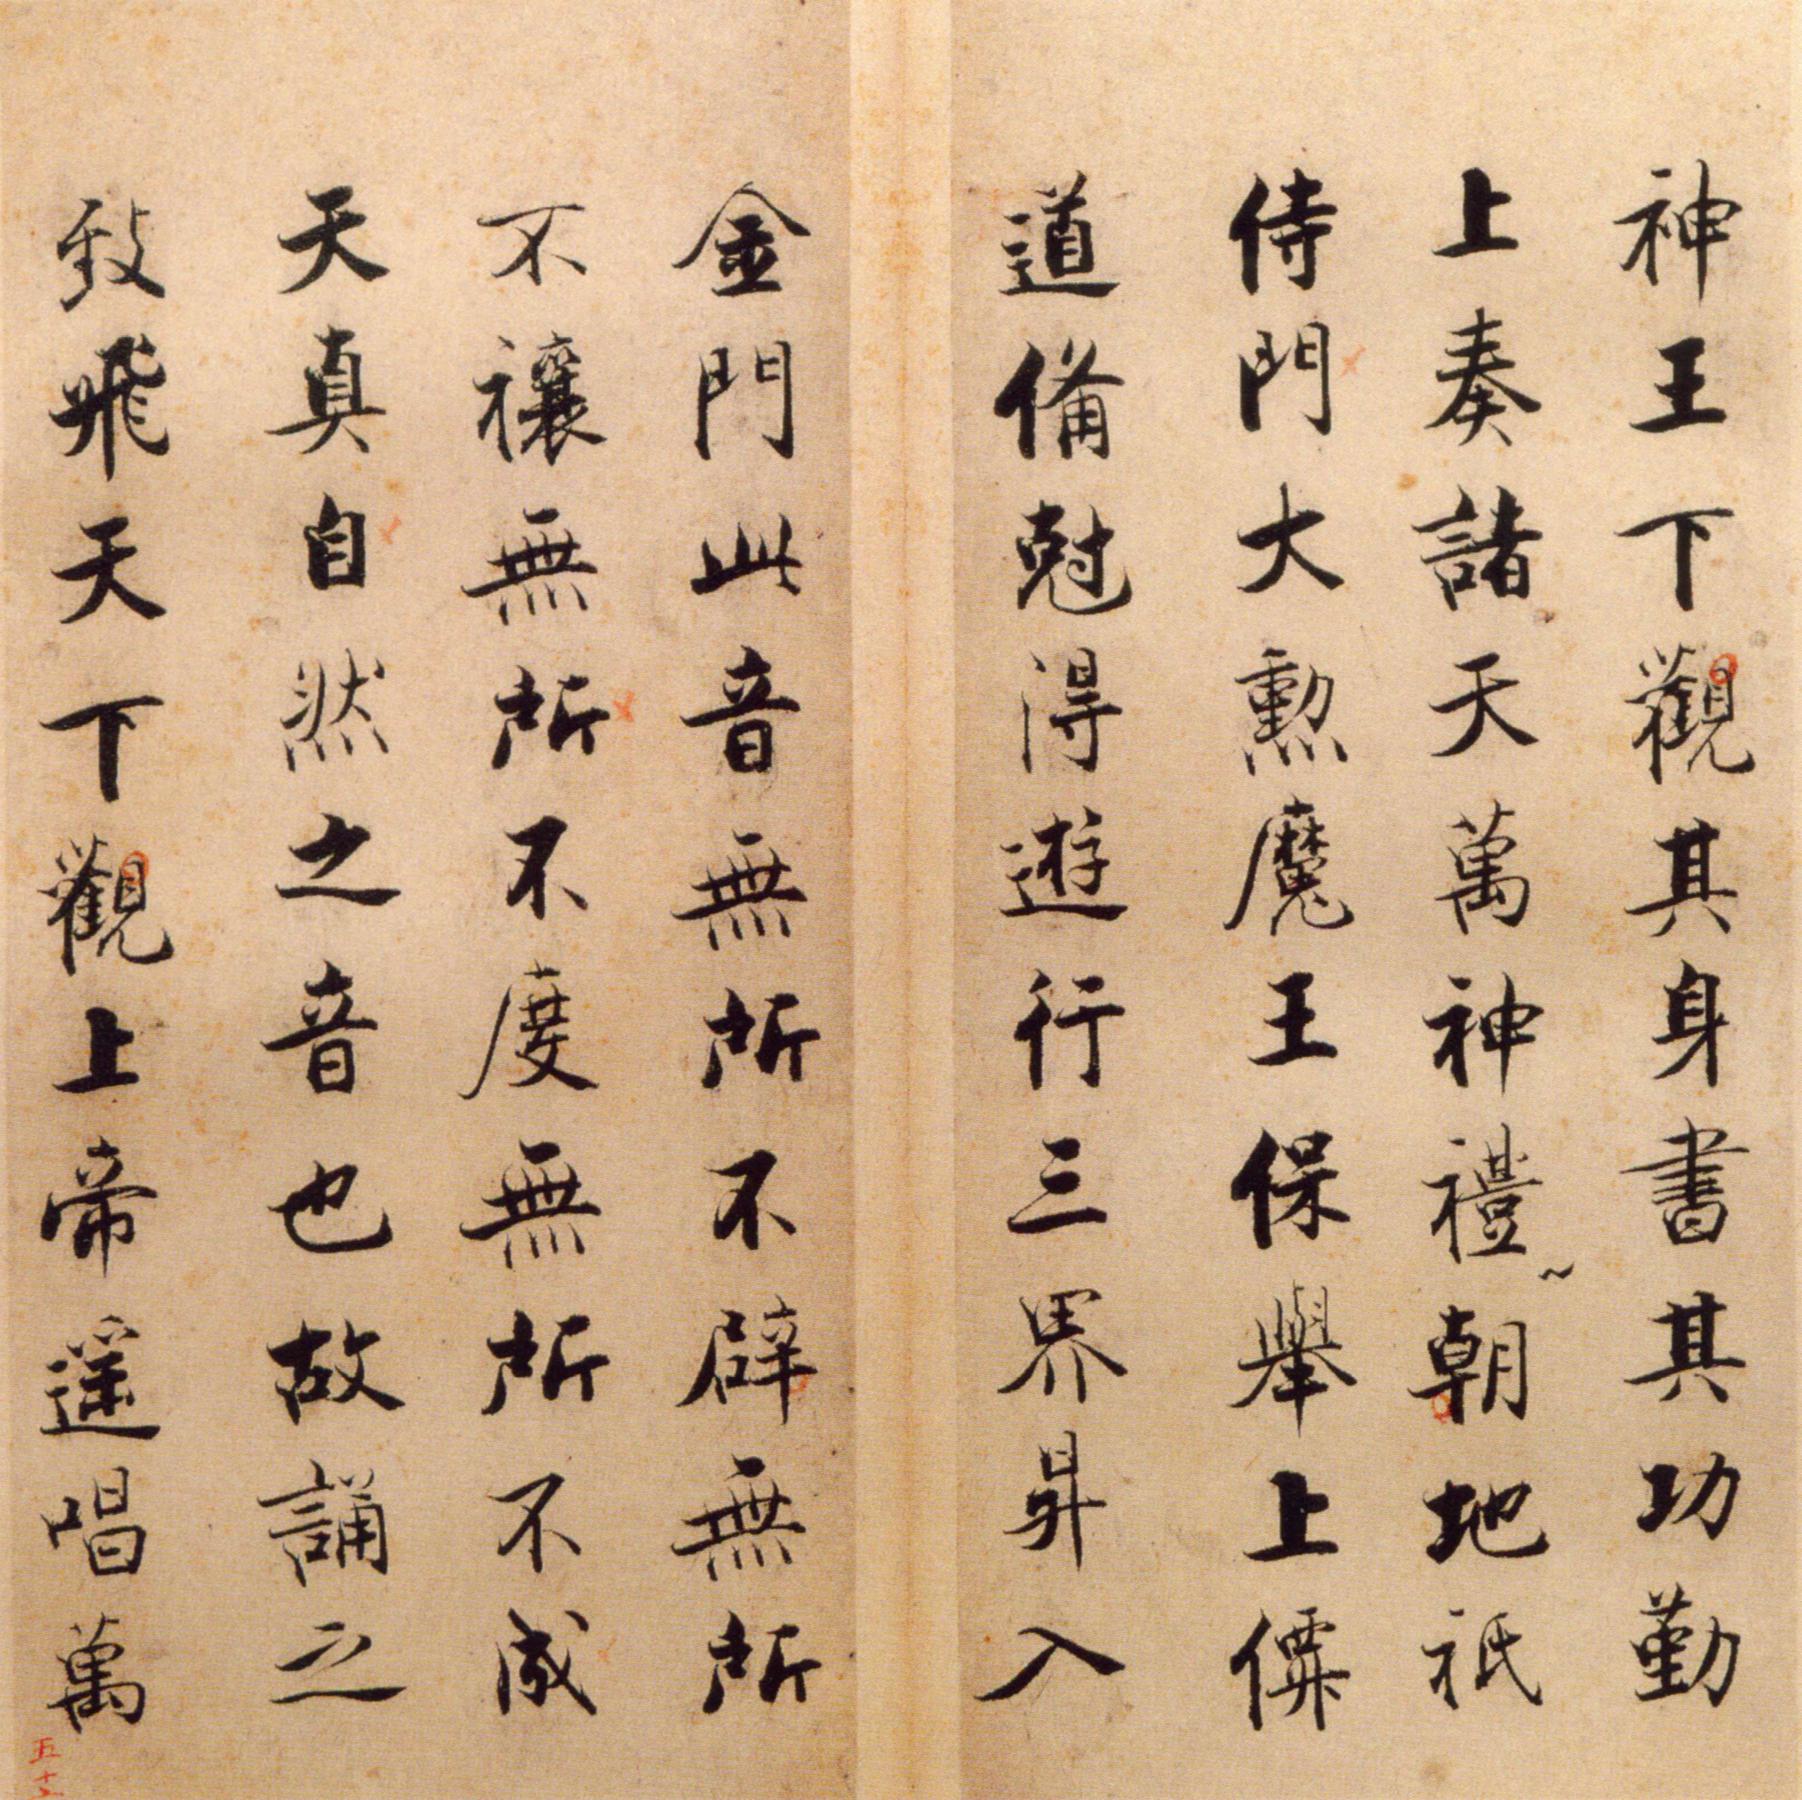 神王下觀其身書其功勤
上奏諸天萬神禮朝地祇
侍門大勳魔王保舉上僊
道備尅得遊行三界昇入
金門此音無所不辟無所
不禳無所不度無所不成
天真自然之音也故誦之
致飛天下觀上帝遥唱萬